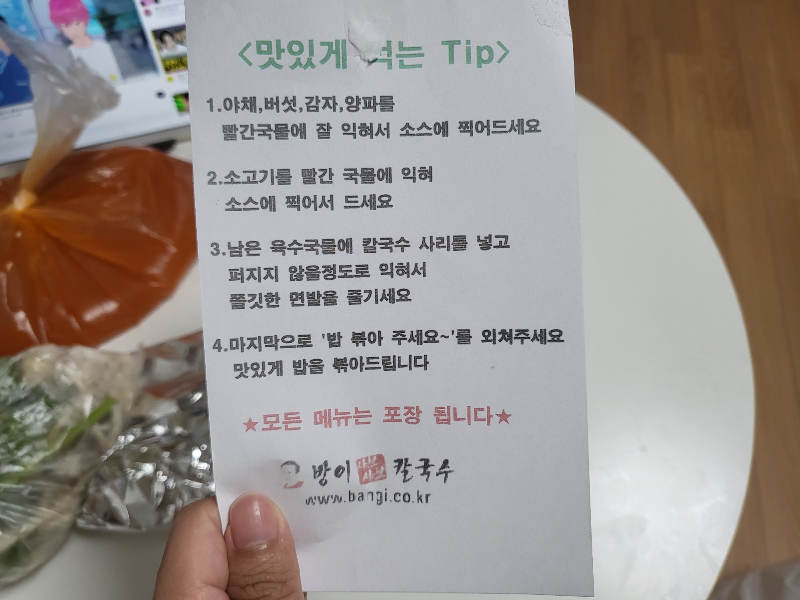 <맛있게 먹는 Tip>
1.야채,버섯,감자,양파를
빨간국물에 잘 익혀서 소스에 찍어드세요
2.소고기를 빨간 국물에 익혀
소스에 찍어서 드세요
3.남은 육수국물에 칼국수 사리를 넣고
퍼지지 않을정도로 익혀서
쫄깃한 면발을 즐기세요
4.마지막으로 '밥 볶아 주세요~'를 외쳐주세요
맛있게 밥을 볶아드립니다
★모든 메뉴는 포장 됩니다★
방이 칼국수
www.bangi.co.kr